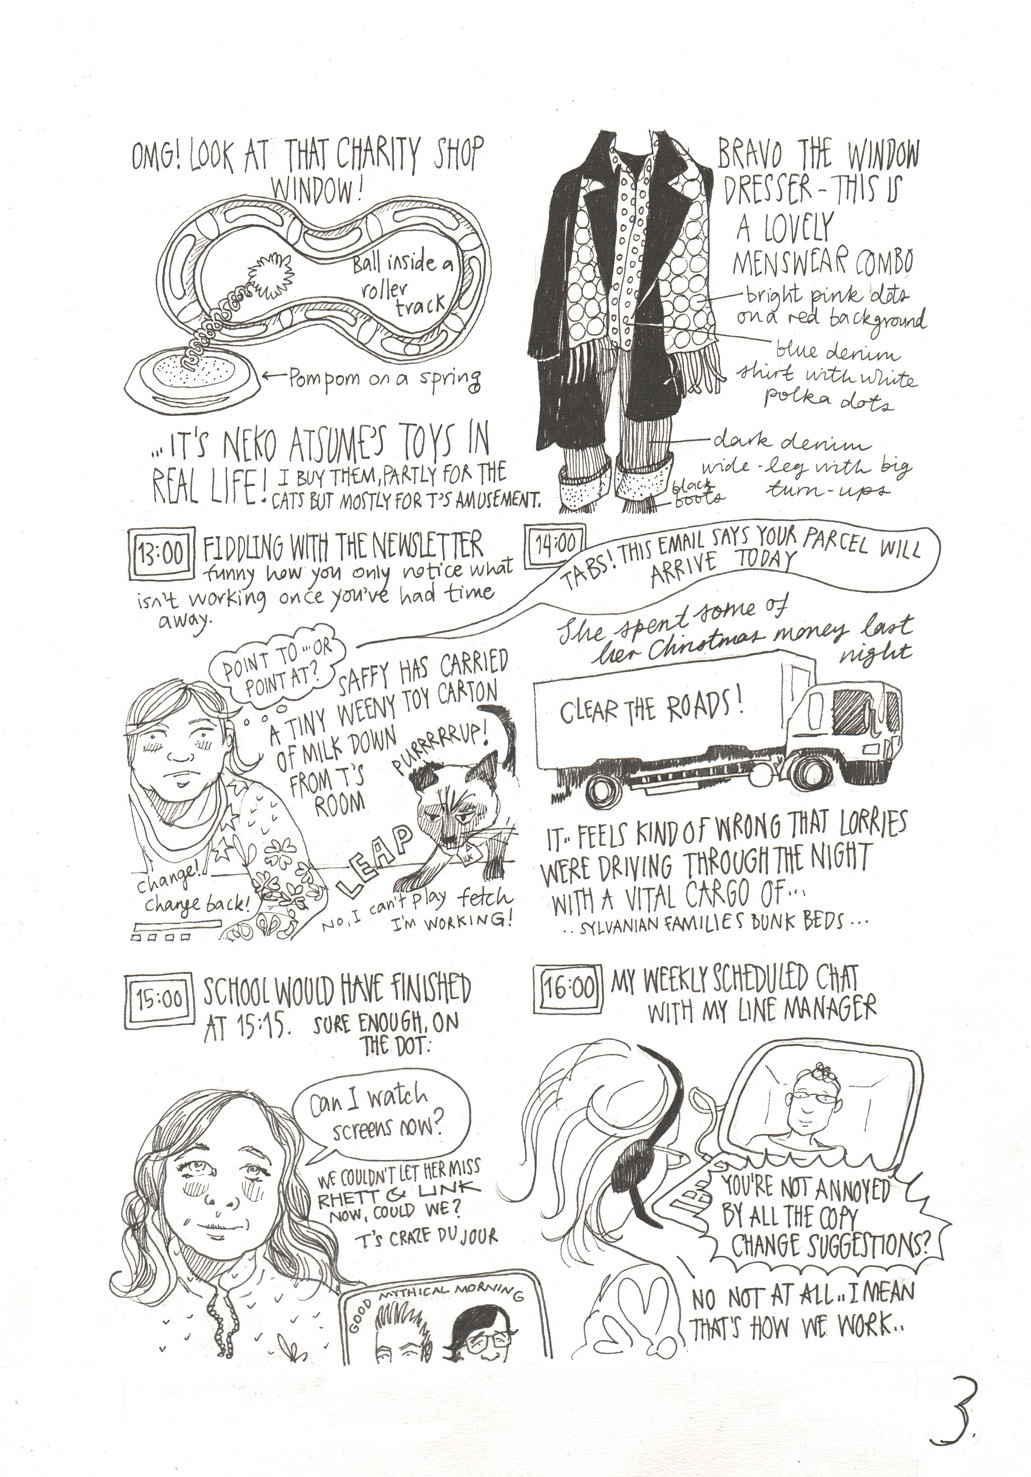 OMG! LOOK AT THAT CHARITY SHOP
WINDOW!
Ball inside a
roller
track
←Pompom on a spring
...IT'S NEKO ATSUME'S TOYS IN
REAL LIFE! I BUY THEM, PARTLY FOR THE
CATS BUT MOSTLY FOR T'S AMUSEMENT.
BRAVO THE WINDOW
DRESSER - THIS IS
A LOVELY
MENSWEAR COMBO
bright pink dots
on a red background
blue denim
shirt with white
polka dots
dark denim
wide-leg with big
turn-ups
black
boots
13:00 FIDDLING WITH THE NEWSLETTER
funny how you only notice what
isn't working once you've had time
away.
POINT TO...OR
POINT AT?
SAFFY HAS CARRIED
A TINY WEENY TOY CARTON
OF MILK DOWN
FROM T'S
ROOM
PURRRRRUP!
LEAP
change!
change back!
No, I can't play fetch
I'M WORKING!
14:00
TABS! THIS EMAIL SAYS YOUR PARCEL WILL
ARRIVE TODAY
She spent some of
her Christmas money last
night
CLEAR THE ROADS!
IT.. FEELS KIND OF WRONG THAT LORRIES
WERE DRIVING THROUGH THE NIGHT
WITH A VITAL CARGO OF...
..SYLVANIAN FAMILIES BUNK BEDS...
15:00 SCHOOL WOULD HAVE FINISHED
AT 15:15. SURE ENOUGH, ON
THE DOT:
Can I watch
screens now?
WE COULDN'T LET HER MISS
RHETT & LINK
NOW, COULD WE?
T'S CRAZE DU JOUR
GOOD MYTHICAL MORNING
16:00 MY WEEKLY SCHEDULED CHAT
WITH MY LINE MANAGER
YOU'RE NOT ANNOYED
BY ALL THE COPY
CHANGE SUGGESTIONS?
NO NOT AT ALL.. I MEAN
THAT'S HOW WE WORK..
3.